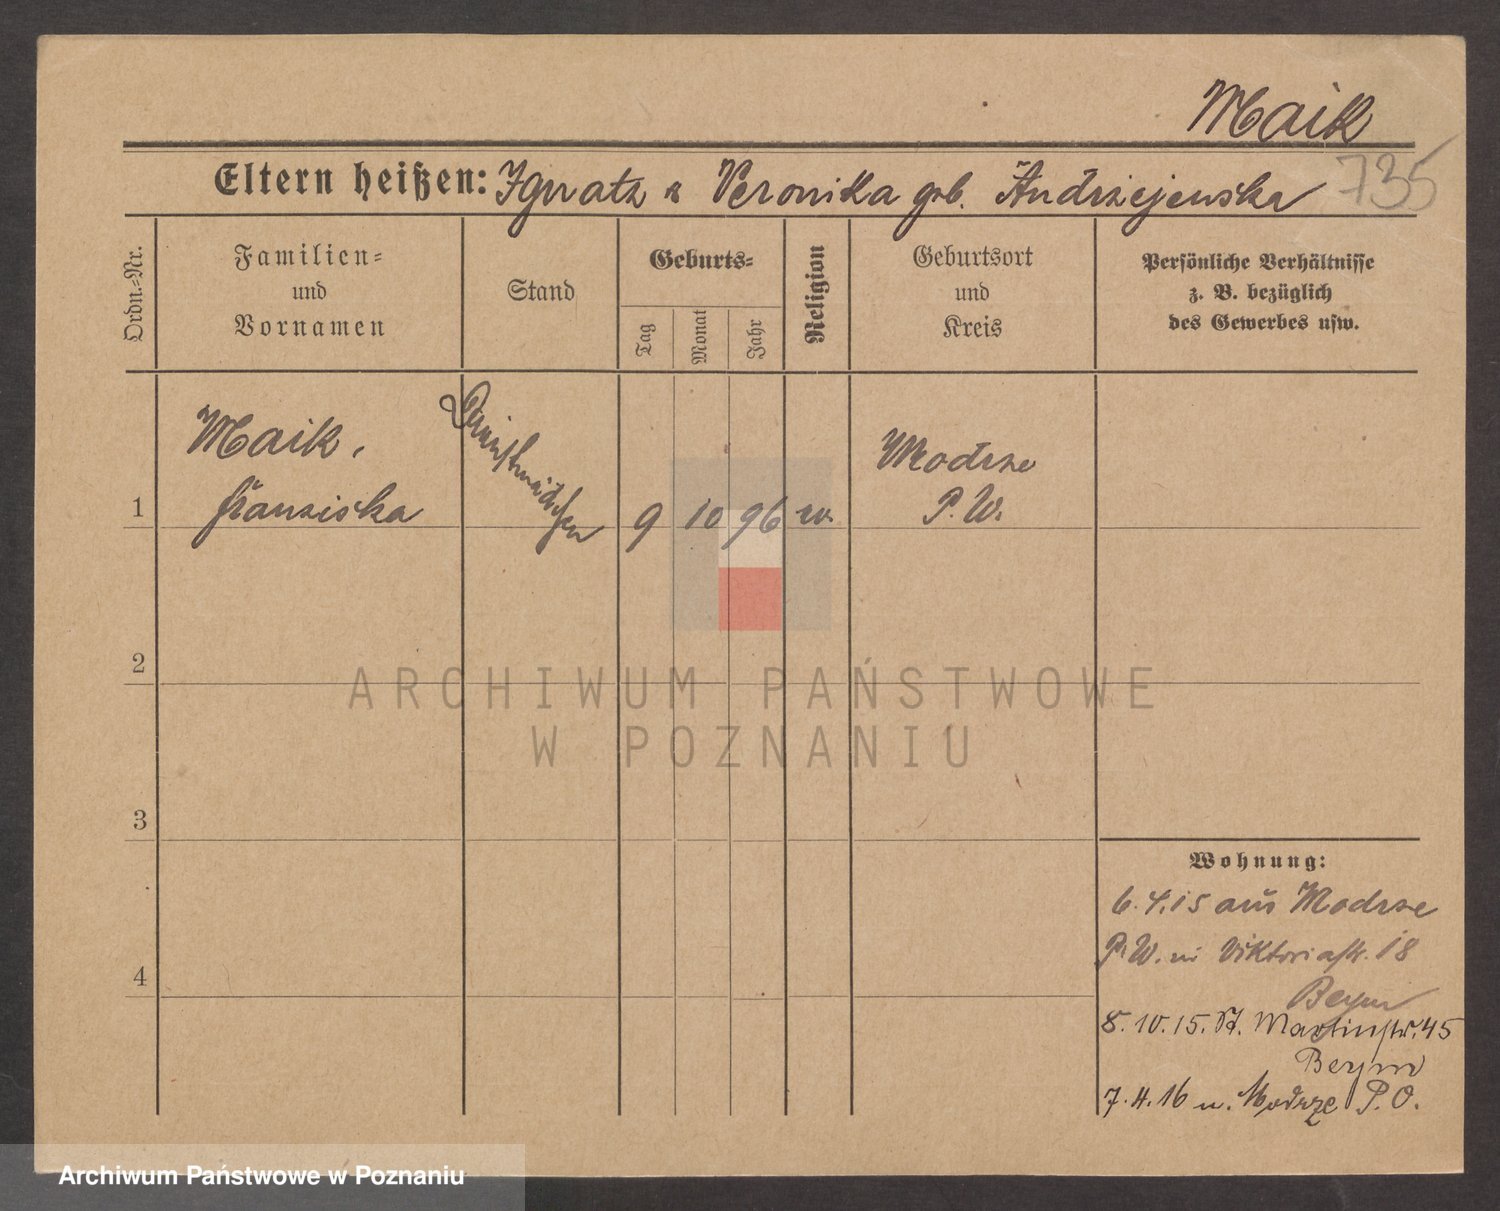 Maik
735
Eltern heißen: Ignatz u Veronika geb. Andrziejewska
Ordn.-Nr.
Familien-
und
Vornamen
Stand
Geburts-
Tag
Monat
Jahr
Religion
Geburtsort
und
Kreis
Persönliche Verhältnisse
z. B. bezüglich
des Gewerbes usw.
1
Maik,
Franziska
Dienstmädchen
9 10 96
Modrze
P. W.
2
3
4
Wohnung:
6. 4. 15 aus Modrze
P. W. in Viktoriastr. 18
Beym
8. 10. 15. St. Martinstr. 45
Beym
7. 4. 16 n. Modrze P. O.
ARCHIWUM PAŃSTWOWE
W POZNANIU
Archiwum Państwowe w Poznaniu